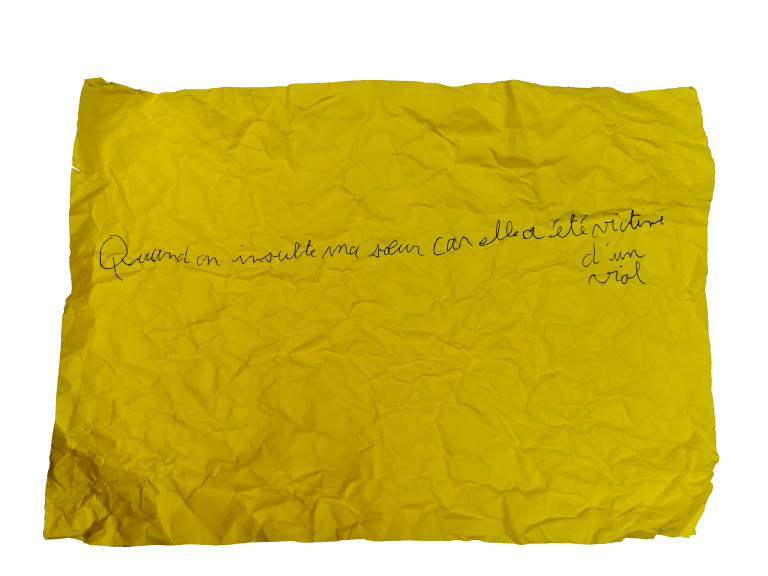 Quand on insulte ma sœur car elle a été victime
d'un
viol